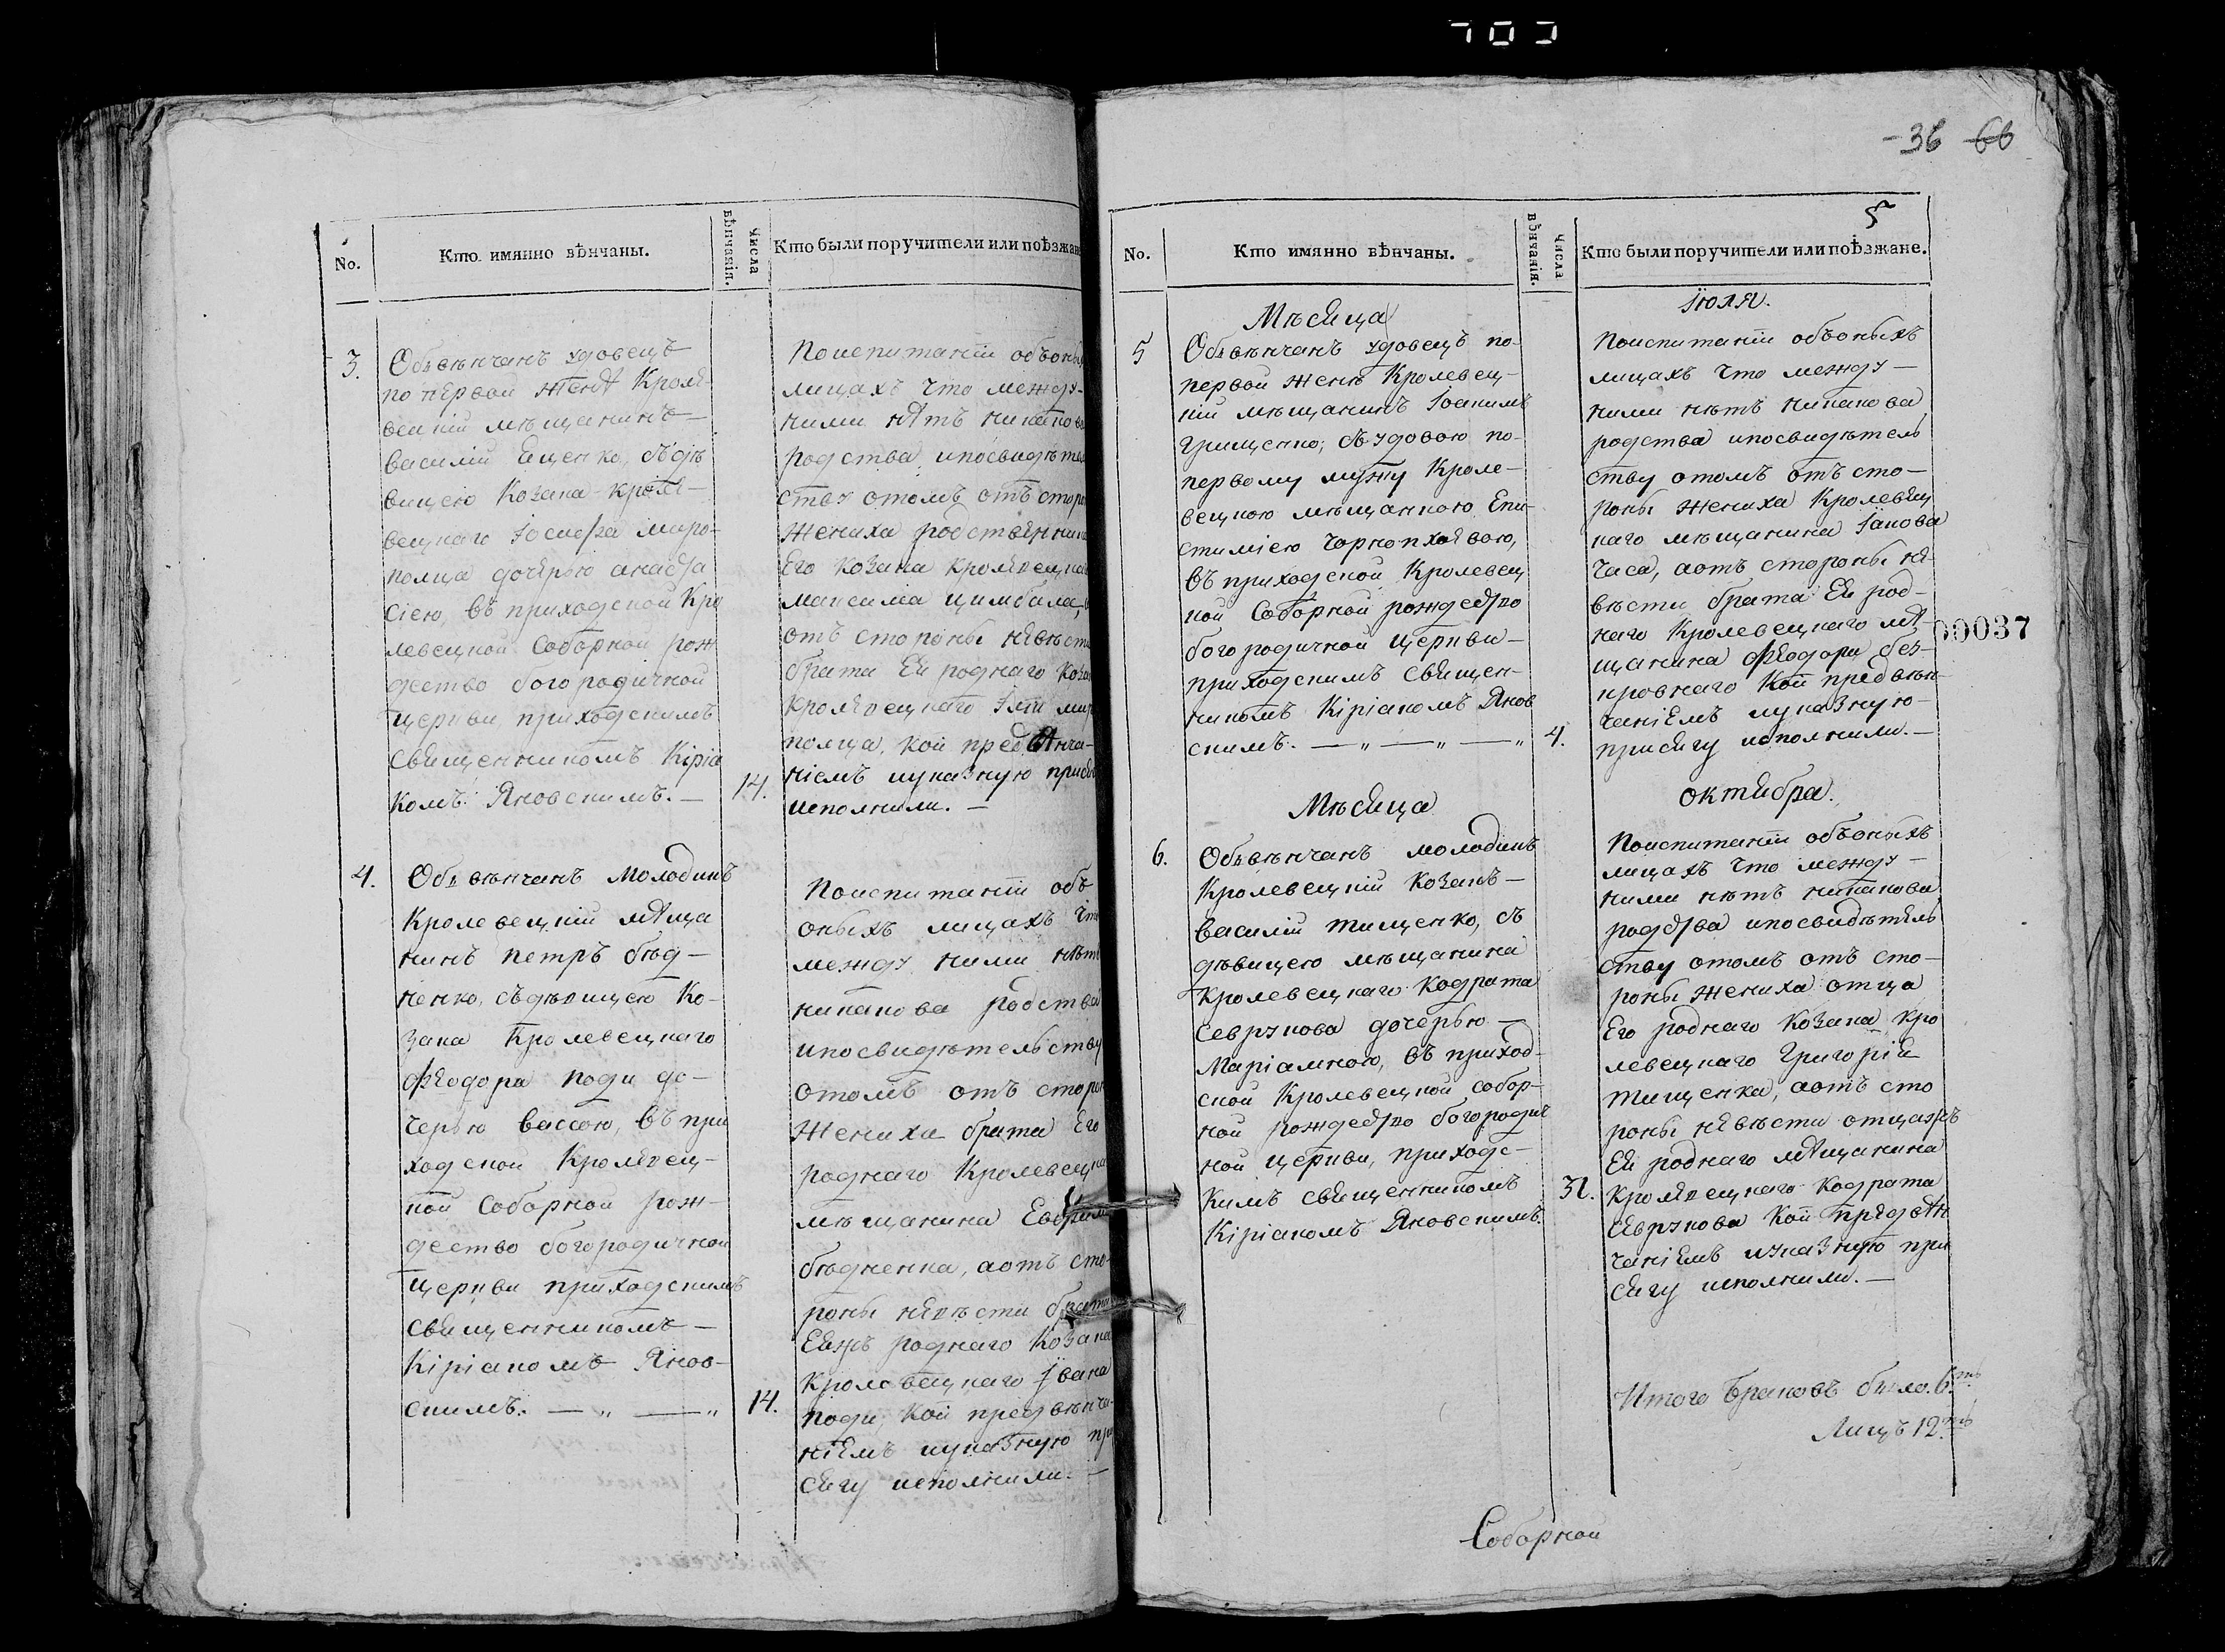 -36 66
No.
Кто имянно вѣнчаны.
Числа вѣнчанія.
Кто были поручители или поѣзжане
3.
Обвѣнчанъ удовецъ
по первой женѣ Кроле-
вецкій мѣщанинъ —
василій Яценко, съдѣ
вицею Козака кроле-
вецкаго Іосифа миро-
полца дочерью анаста
сіею, въ приходской Кро
левецкой Соборной рож
дество богородичной
церкви приходскимъ
Священникомъ Кіріа
комъ Яновскимъ. —
14.
Поиспитаніи объоны
лицахъ что между-
ними нѣтъ никаково
родства ипосвидѣте
ству отомъ отъ сторо
жениха родственника
Его козака кролевецка
максима цимбала, а
отъ стороны невѣсти
брата Ей роднаго коза
кролевецкаго миро
полца, кои предвѣнча-
ніемъ иуказную прися
исполнили. —
4.
Обвѣнчанъ молодикъ
Кролевецкій мѣща
нинъ петръ бѣд-
ненко, съдѣвицею Ко-
зака Кролевецкаго
Феодора поди до-
черью вассою, въ при
ходской Кролевец-
кой Соборной рож-
дество богородичной
церкви приходскимъ
священникомъ —
Кіріакомъ Янов-
скимъ. — „ — „
14.
Поиспитаніи объ
оныхъ лицахъ что
между ними нѣтъ
никакова родства
ипосвидѣтельству
отомъ отъ сторо
жениха брата Его
роднаго Кролевецка
мѣщанина Евфима
бѣдненка, аотъ сто-
роны невѣсти брата
Еяжъ роднаго козака
кролевецкаго Ивана
поди, кои предвѣнча-
ніемъ иуказную при
сягу исполнили. —
No.
Кто имянно вѣнчаны.
Числа вѣнчанія.
Кто были поручители или поѣзжане.
Мѣсяца
Іюля.
5
Обвѣнчанъ удовецъ по-
первой женѣ Кролевец-
кій мѣщанинъ Іоакимъ
грищенко, съудовою по-
первому мужу Кроле-
вецкою мѣщанкою Епи-
стиміею чорнопхаевою,
въ приходской Кролевец
кой Соборной рождество
богородичной церкви —
приходскимъ священ-
никомъ Кіріакомъ Янов
скимъ. — „ — „ — „
4.
Поиспитаніи объоныхъ
лицахъ что между —
ними нѣтъ никакова
родства ипосвидѣтель
ству отомъ отъ сто-
роны жениха Кролевец
каго мѣщанина Іакова
часа, аотъ стороны не-
вѣсти брата Ей род-
наго Кролевецкаго мѣ-
щанина Феодора без-
кровнаго кои предвѣн-
чаніемъ иуказную —
присягу исполнили. —
00037
Мѣсяца
октября.
6.
Обвѣнчанъ молодикъ
Кролевецкій козакъ —
василій тищенко, съ
дѣвицею мѣщанина
Кролевецкаго Кодрата
Саврукова дочерью —
Маріамною, въ приход-
ской Кролевецкой собор-
ной рождество богородич
ной церкви, приходс-
кимъ священникомъ
Кіріакомъ Яновскимъ.
31.
Поиспитаніи объоныхъ
лицахъ что между —
ними нѣтъ никакова
родства ипосвидѣтель
ству отомъ отъ сто-
роны жениха отца
Его роднаго козака кро
левецкаго Григорія
тищенка, аотъ сто
роны невѣсти отцажъ
Ей роднаго мѣщанина
кролевецкаго Кодрата
саврукова кои предвѣн
чаніемъ иуказную при
сягу исполнили. —
Итого Браковъ было. 6.ть
Лицъ 12.ть
Соборной